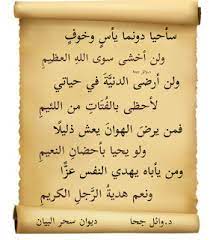 سأحيا دونما يأسٍ وخوفٍ
ولن أخشى سوى اللهِ العظيمِ
ولن أرضى الدنيَّةَ في حياتي
لأحظى بالفُتاتِ من اللئيمِ
فمن يرضَ الهوانَ يعش ذليلًا
ولو يحيا بأحضانِ النعيمِ
ومن يأباه يهدي النفس عزًّا
ونعم هديةُ الرَّجلِ الكريمِ
د.وائل جحا ديوان سحر البيان